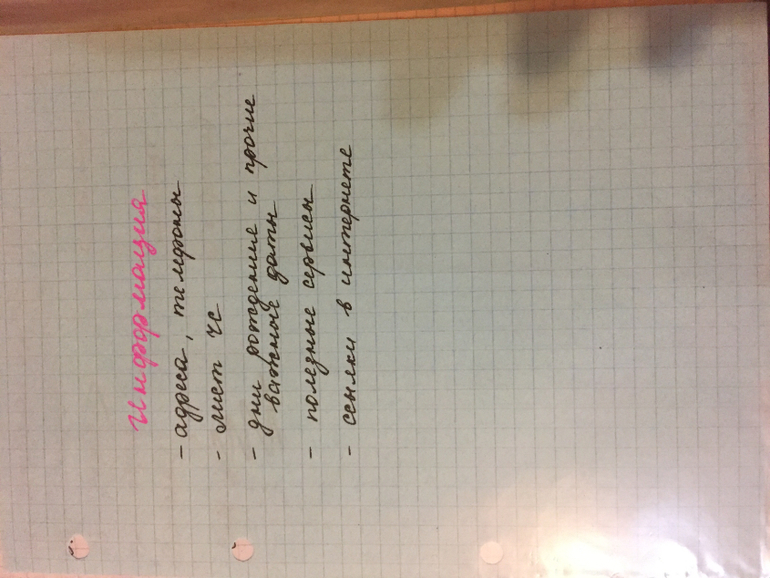 Информация
- адреса, телефоны
- лист ЧС
- дни рождение и прочие
важные даты
- полезные сервисы
- ссылки в интернете